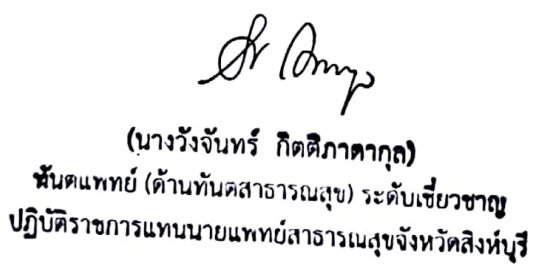 (นางวังจันทร์ กิตติภาดากุล)
ทันตแพทย์ (ด้านทันตสาธารณสุข) ระดับเชี่ยวชาญ
ปฏิบัติราชการแทนนายแพทย์สาธารณสุขจังหวัดสิงห์บุรี